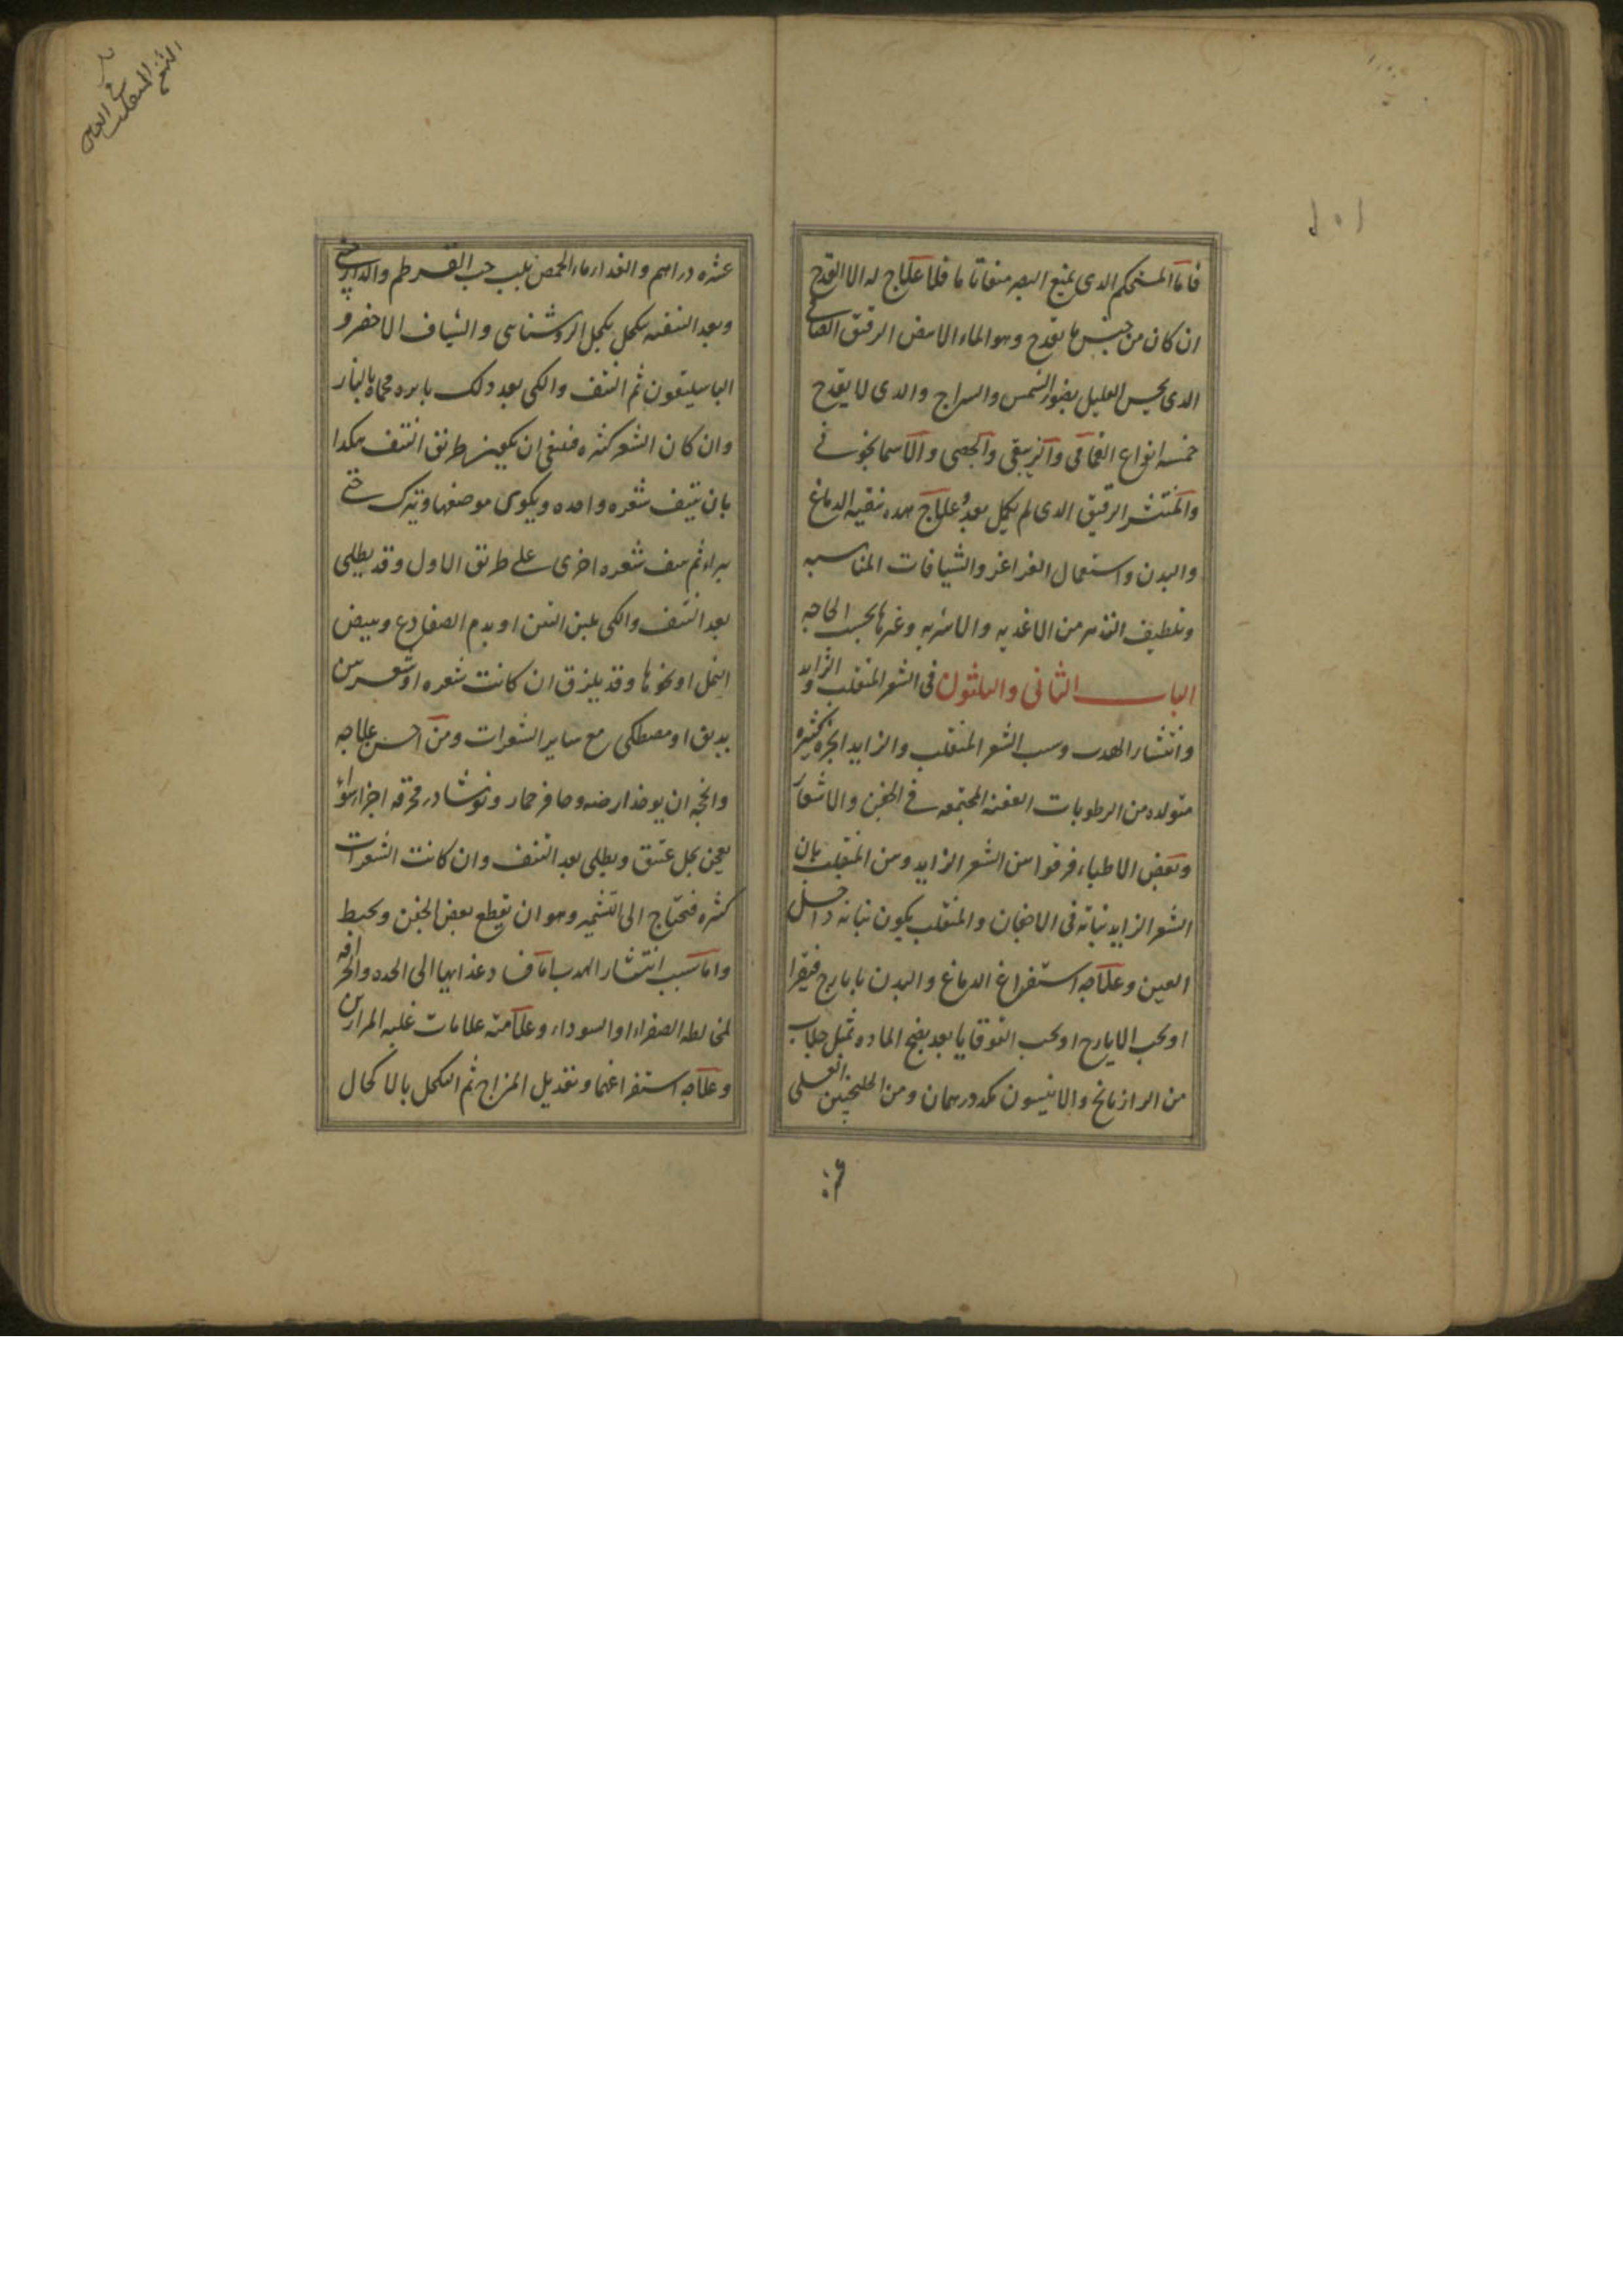 فاما المستحکم الدی یمنع البصر منعا تاما فلا علاج له الا القدح
ان کان من جنس ما یقدح وهو الماء الابیض الرقیق الصافی
الدی یحس العلیل بضوء الشمس والسراج والدی لا یقدح
خمسه انواع الغمامی والزیبقی والجصی والاسمانجونی
والمنتشر الرقیق الدی لم یکمل بعد وعلاج هده تنقیه الدماغ
والبدن واستعمال الغراغر والشیافات المناسبه
وتلطیف التدبیر من الاغدیه والاشربه وغیرها بحسب الحاجه
الباب الثانی والثلثون فی الشعر المنقلب والزاید
وانتشار الهدب وسبب الشعر المنقلب والزاید ابخره کثیره
متولده من الرطوبات العفنه المجتمعه فی الجفن والاشفار
وبعض الاطباء فرقوا بین الشعر الزاید وبین المنقلب بان
الشعر الزاید نباته فی الاجفان والمنقلب یکون نباته داخل
العین وعلاجه استفراغ الدماغ والبدن بایارج فیقرا
او بحب الایارج او بحب القوقایا بعد نضج الماده بمثل جلاب
من الرازیانج والانیسون مکد درهمان ومن الجلنجبین العسلی
١٥١
الشعر المنقلب
عشره دراهم والغداء ماء الحمص بلب حب القرطم والدارچینی
وبعد التنقیه یکحل بکحل الروشنایی والشیاف الاخضر و
الباسلیقون ثم النتف والکی بعد دلک بابره محماه بالنار
وان کان الشعر کثیره فینبغی ان یکون طریق النتف هکدا
بان ینتف شعره واحده ویکوی موضعها ویترک حتی
یبراء ثم ینتف شعره اخری علی طریق الاول وقد یطلی
بعد النتف والکی بلبن التین او بدم الضفادع وبیض
النمل او نحوها وقد یلزق ان کانت شعره او شعرتین
بدبق او مصطکی مع سایر الشعرات ومن احسن علاجه
وانجحه ان یوخذ ارضه وحافر حمار ونوشادر محرقه اجزاء سواء
یعجن بخل عتیق ویطلی بعد النتف وان کانت الشعرات
کثیره فیحتاج الی التشمیر وهو ان یقطع بعض الجفن ویخیط
واما سبب انتشار الهدب اما فساد غذایها الی الحده والحرافه
لمخالطه الصفراء او السوداء وعلامته علامات غلبه المرارین
وعلاجه استفراغهما وتعدیل المزاج ثم التکحل بالاکحال